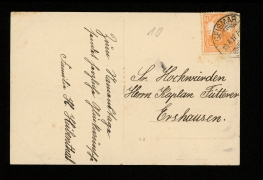 Zum Namenstage
sendet herzliche Glückwünsche
Familie H. Hülfenthal
10
Sr. Hochwürden
Herrn Kaplan Fütterer
Ershausen.